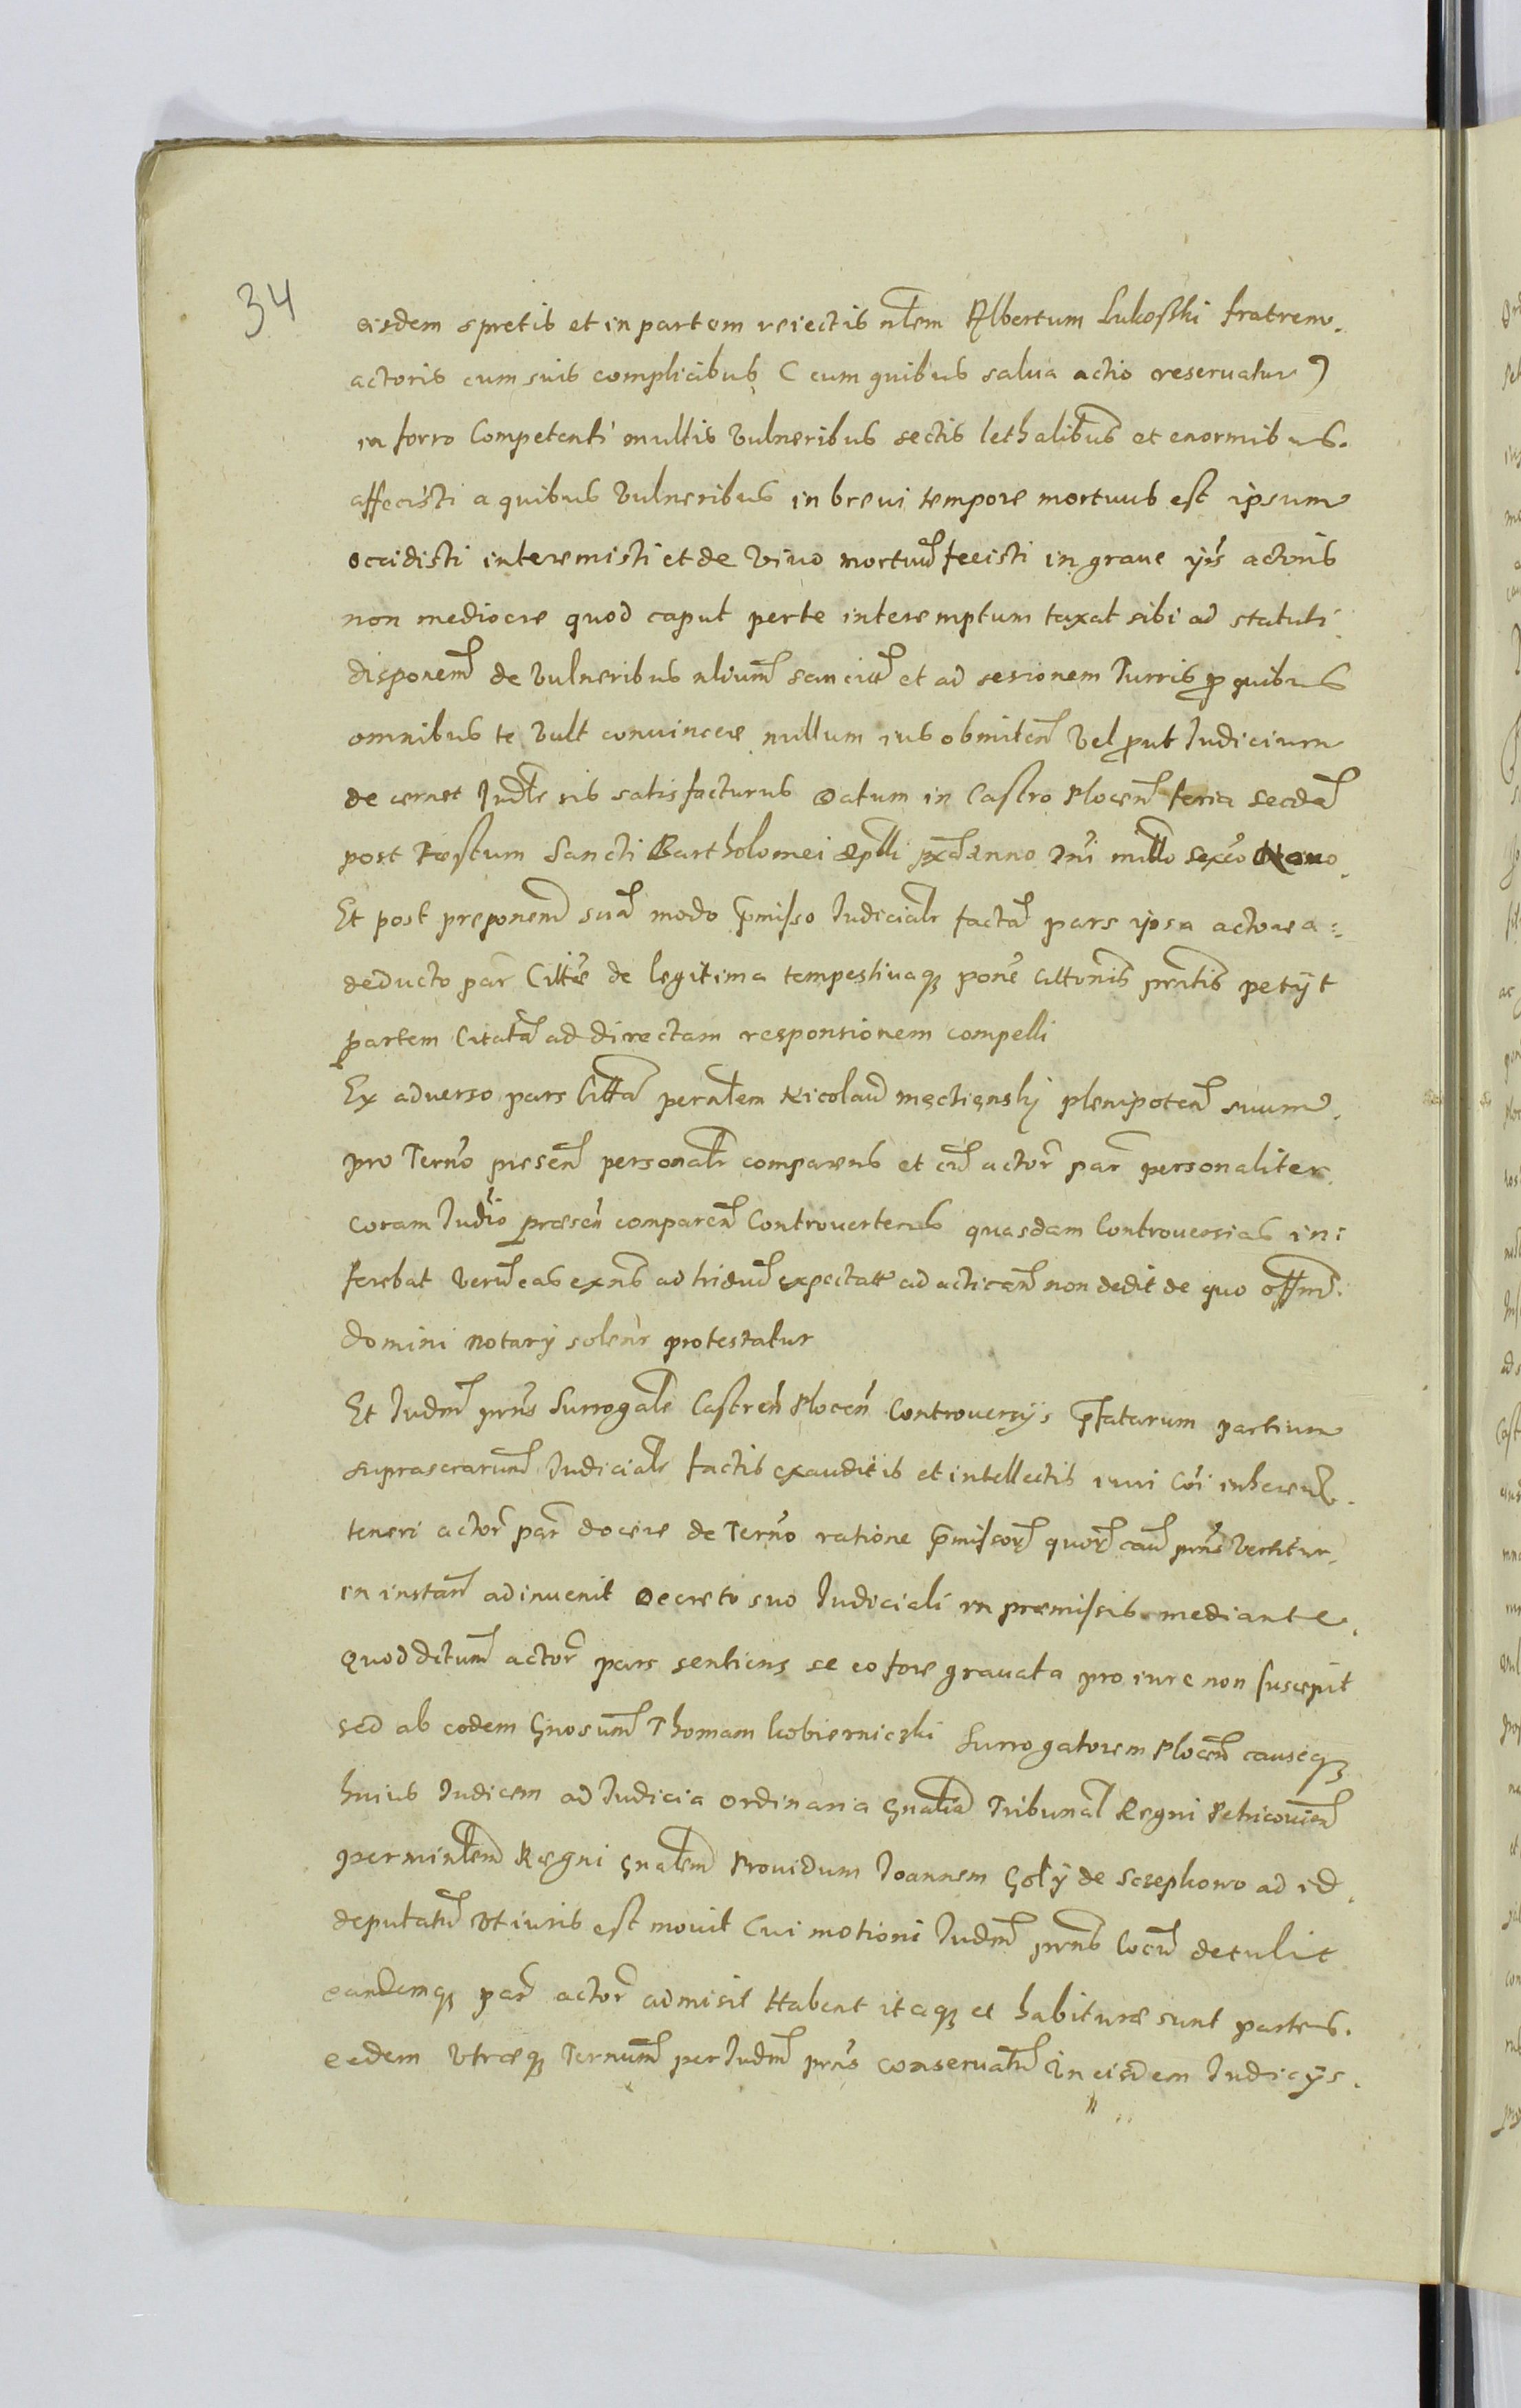 34
eisdem spretis et in partem reiectis nlem Albertum Lukoski fratrem
actoris cum suis complicibus ( cum quibus salua actio reseruatur )
in forro Competenti multis vulneribus sectis lethalibus et enormibus.
affecisti a quibus vulneribus in breui tempore mortuus est ipsum
occidisti interemisti et de viuo mortuu fecisti in graue actoris
non mediocre quod caput per te interemptum taxat sibi ad statuti
disponem de vulneribus nlium sancitt et ad sesionem Turris pro quibus
omnibus te vult conuincere nullum ius obmitten vel prout Iudicium
decernet Iudlr sis satisfacturus Datum in Castro Plocen feria secda
post Festum Sancti Bartholomei Apli anno Dni millo sexco Nono
Et post proponem sua modo pmisso Iudicialr facta pars ipsa actorea
deducto par Citte de legitima tempestiuaq pone petijt
partem Citata ad directam responsionem compelli
Ex aduerso pars Citta per nlem Nicolau plenipoten suum
pro Terno presen personalr comparens et cu actor par personaliter
coram Iudio præsen comparen Controuertens quasdam Controuersias in:
ferebat veru eas exns ad triduu expectatt ad actican non dedit de quo offm
domini notarij solenr protestatur
Et Iudm prns Surrogale Castren Plocen Controuersijs pfatarum partium
suprascrarum Iudicialr factis exauditis et intellectis iuri Coi inherendo
teneri actor par docere de Terno ratione pmissor quor cau prns vertitur
in instan adinuenit Decreto suo Iudiciali in præmissis mediante
Quod dctum actor pars sentiens se eo fore grauata pro iure non suscepit
sed ab eodem Gnosum Thomam Kobierniczki Surrogatorem Plocen causæq
huius Iudicem ad Iudicia Ordinaria Gnalia Tribunal Regni Petricouien
per minlem Regni Gnalem Prouidum Ioannem Goly de ad id
deputatu vt iuris est mouit Cui motioni Iudm prns locu detulit
eandemq par actor admisit Habent itaq et habituræ sunt partes
eædem vtræq Ternum per Iudm prns conseruatu in eisdem Iudicijs